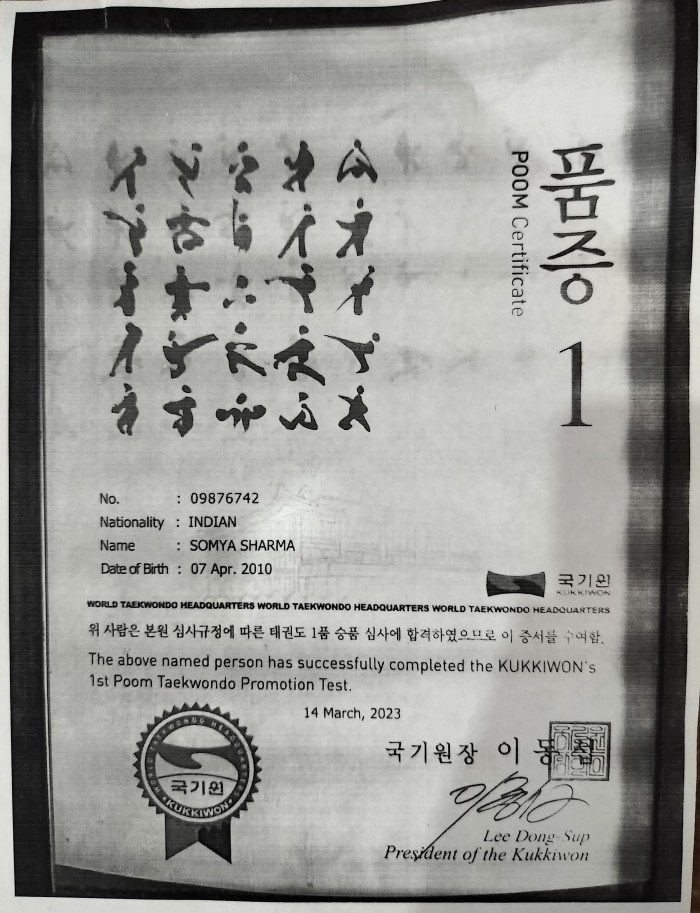 품증
POOM Certificate
1
No. : 09876742
Nationality : INDIAN
Name : SOMYA SHARMA
Date of Birth : 07 Apr. 2010
국기원
KUKKIWON
WORLD TAEKWONDO HEADQUARTERS WORLD TAEKWONDO HEADQUARTERS WORLD TAEKWONDO HEADQUARTERS
위 사람은 본원 심사규정에 따른 태권도 1품 승품 심사에 합격하였으므로 이 증서를 수여함.
The above named person has successfully completed the KUKKIWON's
1st Poom Taekwondo Promotion Test.
14 March, 2023
WORLD TAEKWONDO HEADQUARTERS
국기원
KUKKIWON
국기원장 이 동 섭
Lee Dong-Sup
President of the Kukkiwon